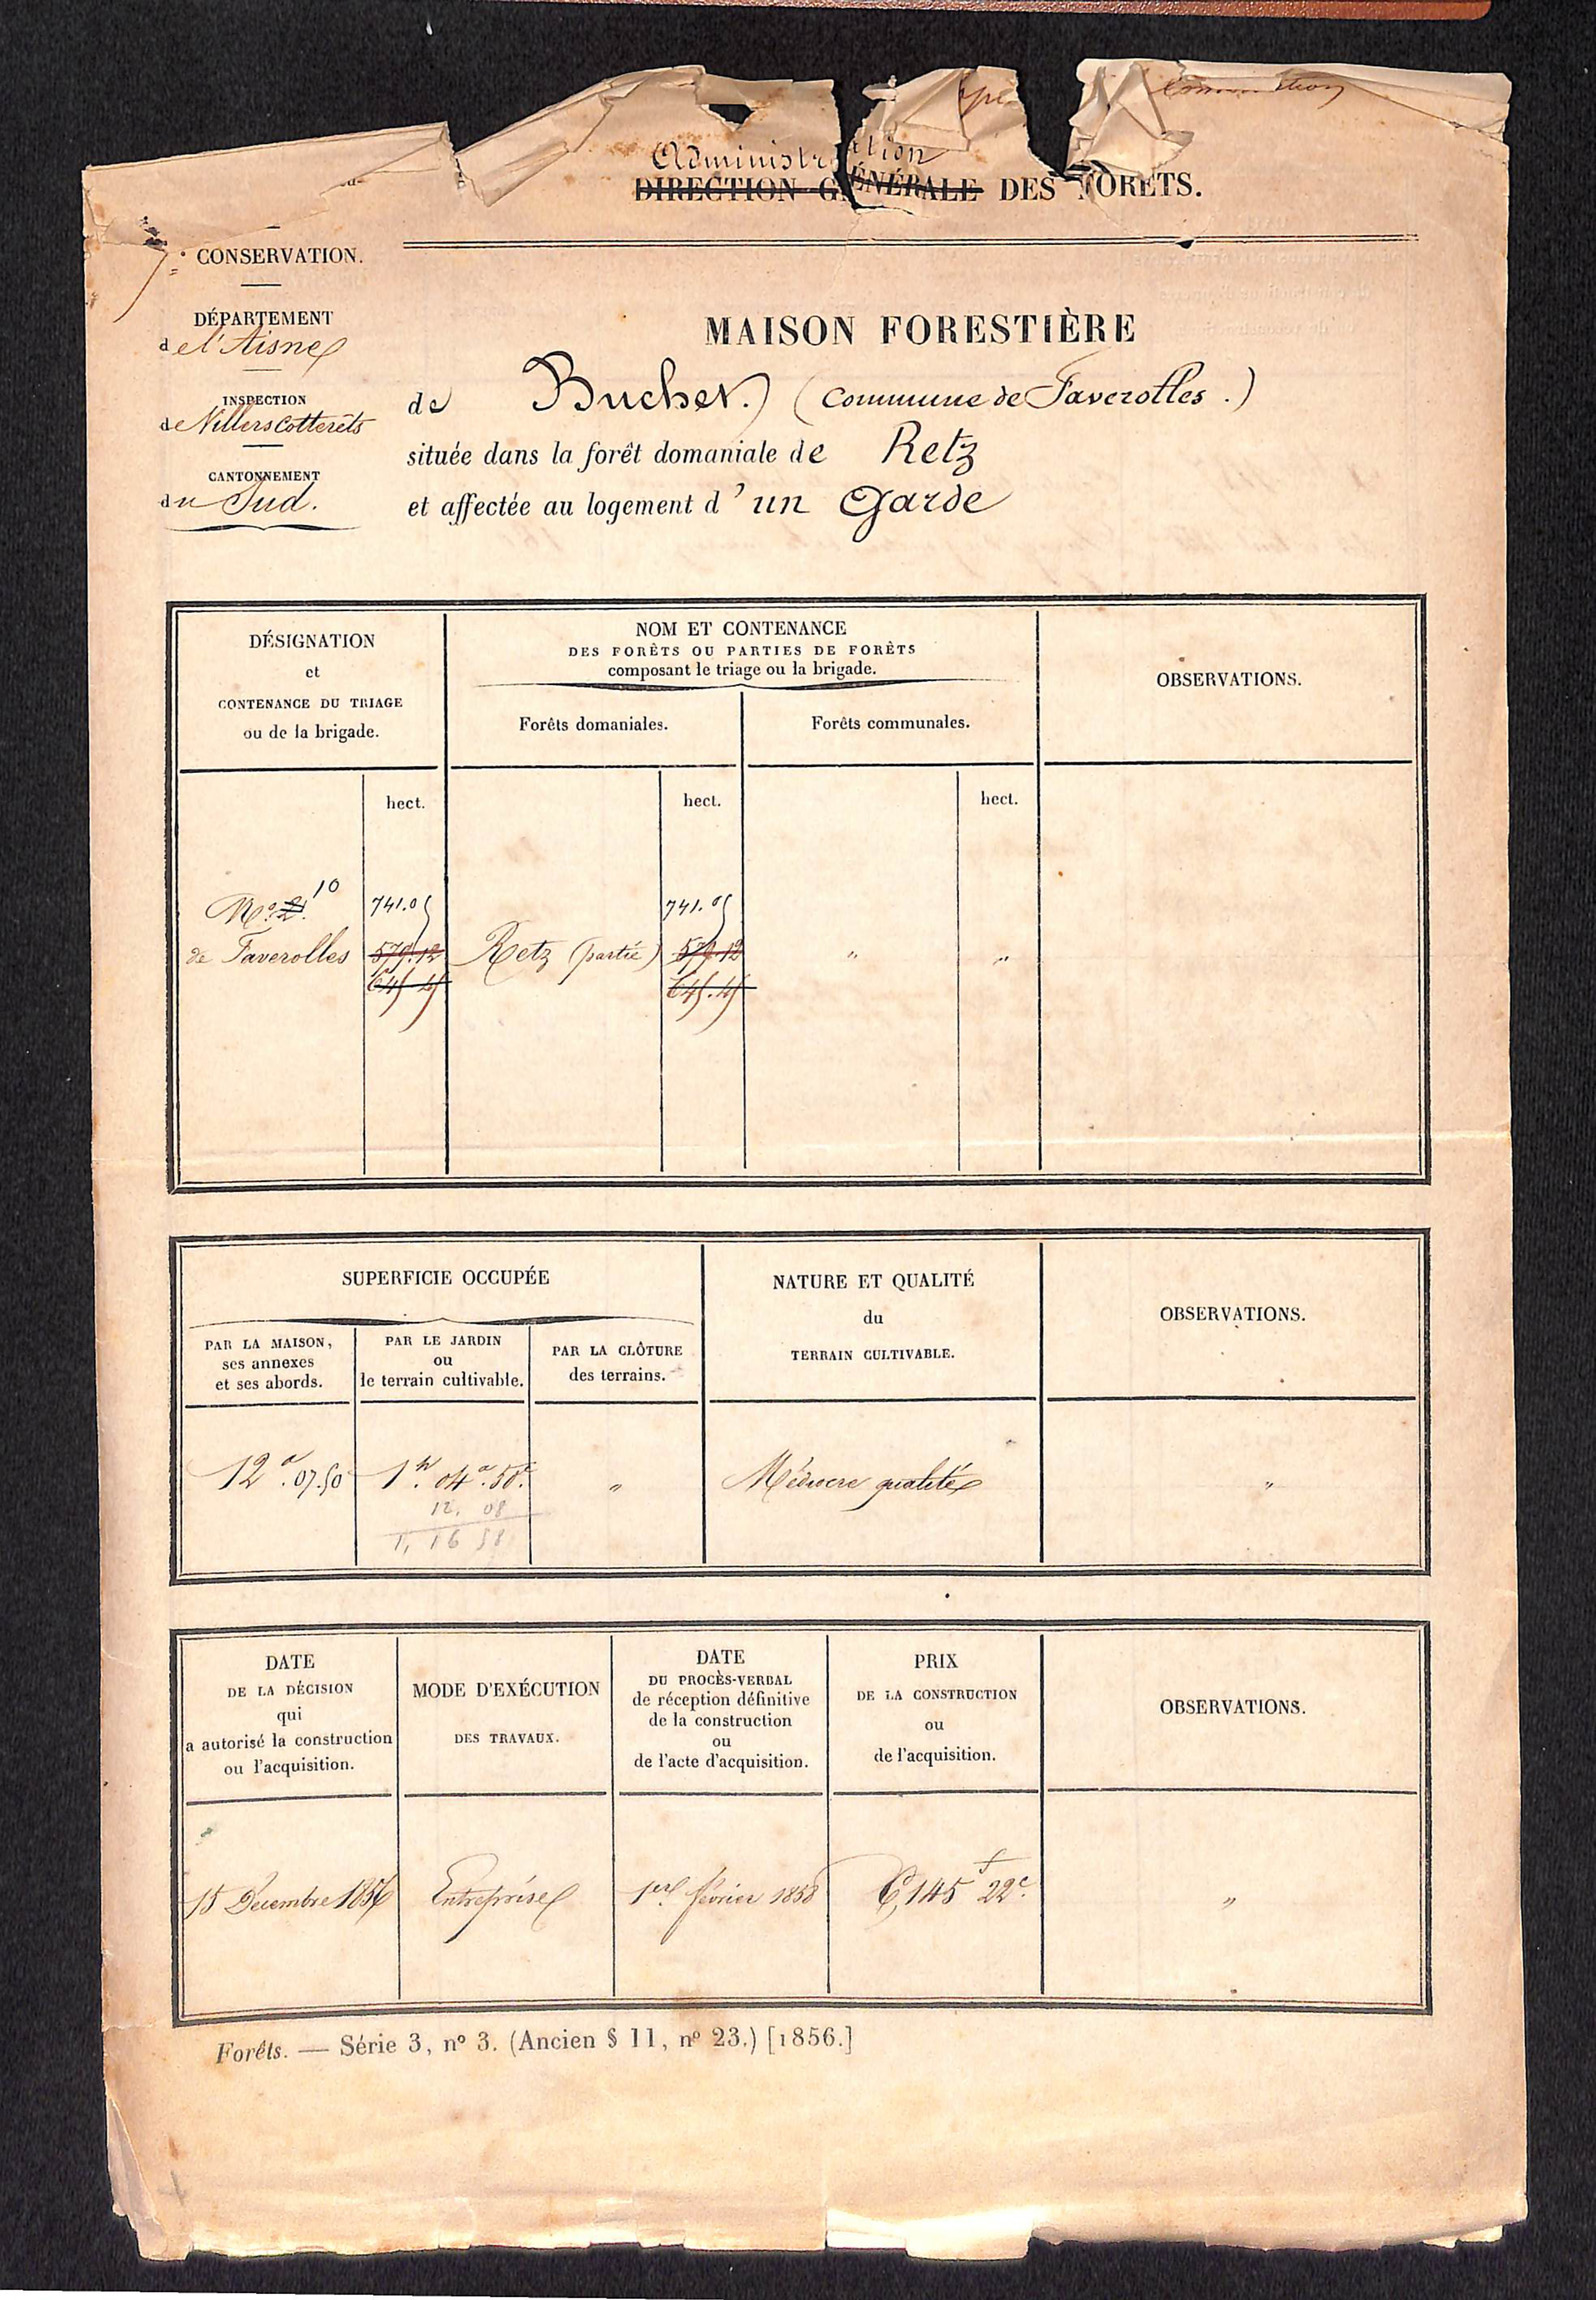 Administration
DIRECTION GÉNÉRALE DES FORÊTS.
7e CONSERVATION.
DÉPARTEMENT
de l'Aisne
INSPECTION
de Villers Cotterêts
CANTONNEMENT
du Sud.
MAISON FORESTIÈRE
de Bucher. (Commune de Faverolles.)
située dans la forêt domaniale de Retz
et affectée au logement d'un Garde
DÉSIGNATION
et
CONTENANCE DU TRIAGE
ou de la brigade.
NOM ET CONTENANCE
DES FORÊTS OU PARTIES DE FORÊTS
composant le triage ou la brigade.
Forêts domaniales.
Forêts communales.
OBSERVATIONS.
hect.
hect.
hect.
No. 10
de Faverolles
741.05
579.12
645.45
Retz (partie)
741.05
579.12
645.45
"
"
SUPERFICIE OCCUPÉE
PAR LA MAISON,
ses annexes
et ses abords.
PAR LE JARDIN
ou
le terrain cultivable.
PAR LA CLÔTURE
des terrains.
NATURE ET QUALITÉ
du
TERRAIN CULTIVABLE.
OBSERVATIONS.
12a.07.50
1H. 04a.50c.
12. 08
1, 16 58
"
Médiocre qualité
"
DATE
DE LA DÉCISION
qui
a autorisé la construction
ou l'acquisition.
MODE D'EXÉCUTION
DES TRAVAUX.
DATE
DU PROCÈS-VERBAL
de réception définitive
de la construction
ou
de l'acte d'acquisition.
PRIX
DE LA CONSTRUCTION
ou
de l'acquisition.
OBSERVATIONS.
15 Décembre 1856
Entreprise
1er février 1858
6,145f 22c.
"
Forêts. — Série 3, n° 3. (Ancien § 11, n° 23.) [1856.]